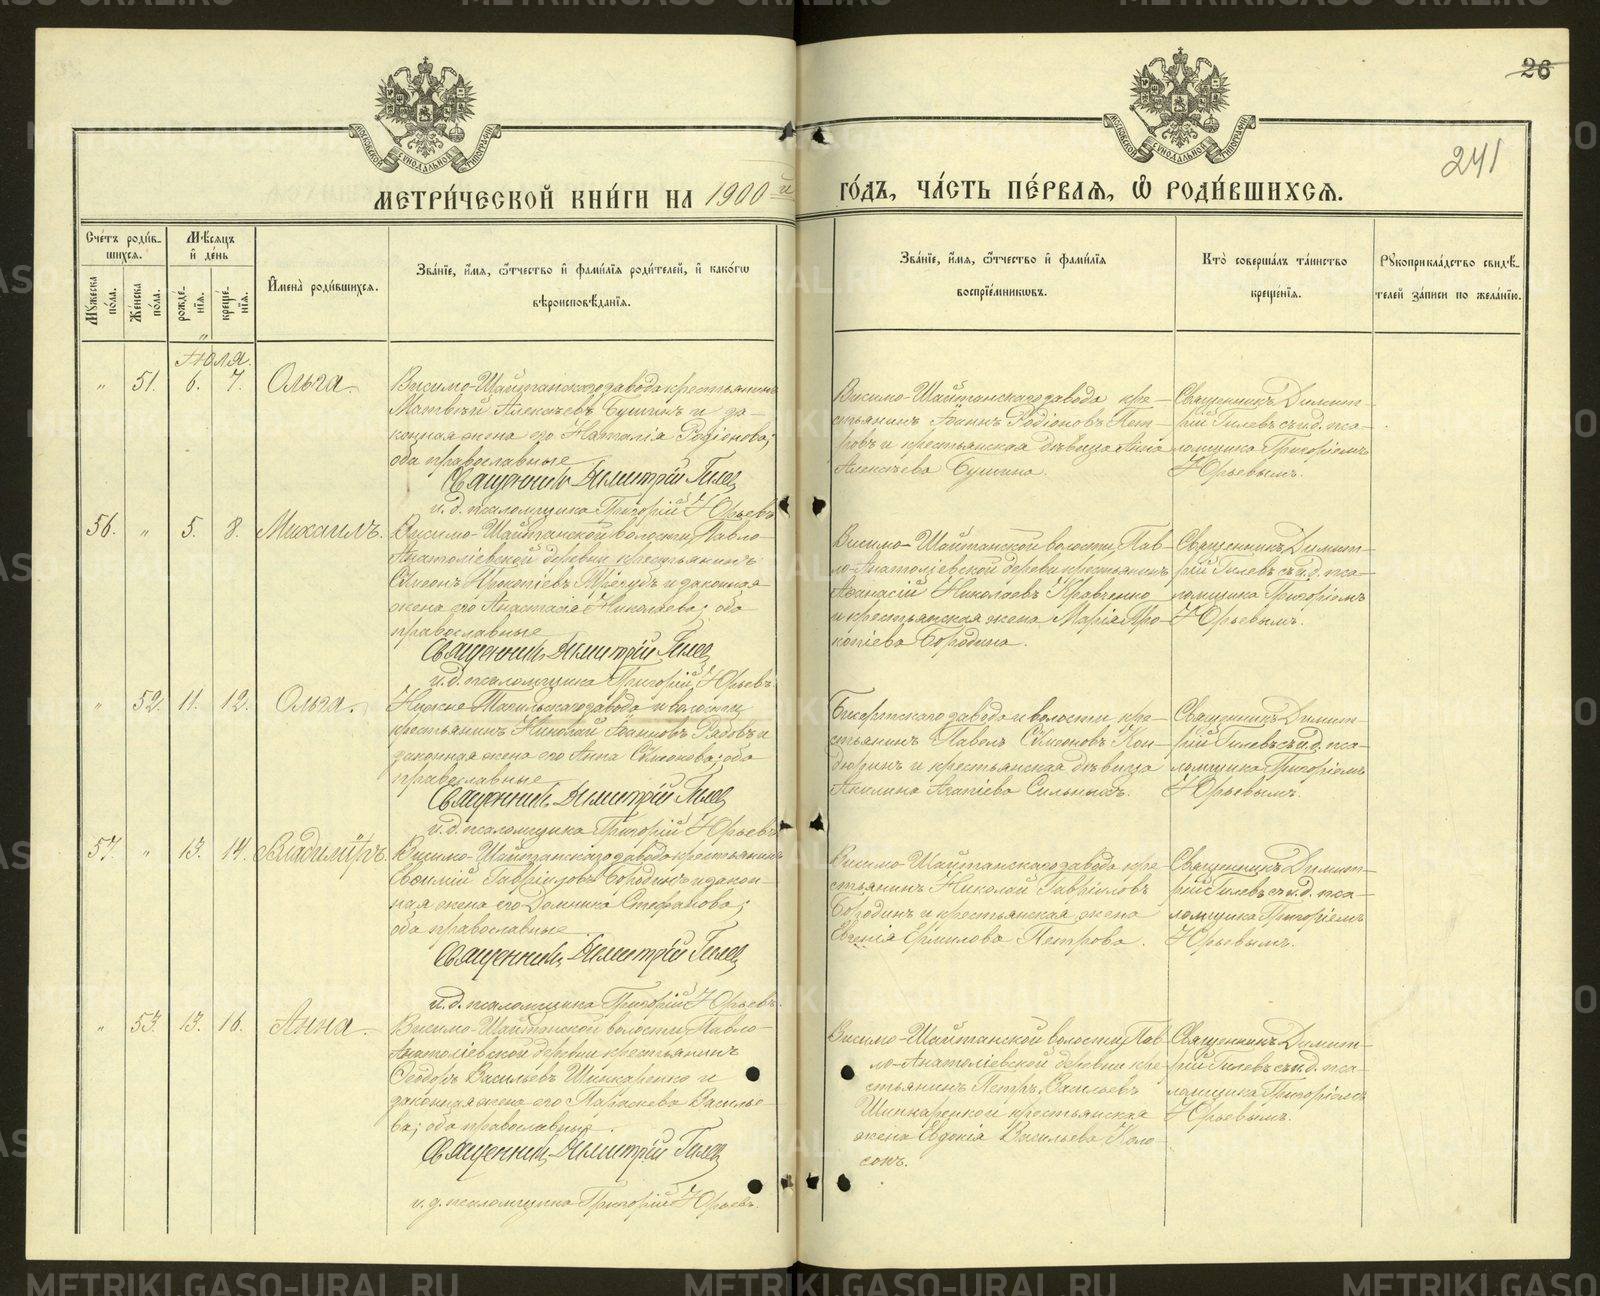 26
241
МОСКОВСКОЙ СѴНОДАЛЬНОЙ ТИПОГРАФІИ
МОСКОВСКОЙ СѴНОДАЛЬНОЙ ТИПОГРАФІИ
МЕТРИ́ЧЕСКОЙ КНИ́ГИ НА 1900й ГО́ДЪ, ЧА́СТЬ ПЕ́РВАѦ, Ѽ РОДИ́ВШИХСѦ.
Сче́тъ роди́в-
шихсѧ.
Мꙋ́жеска по́ла.
Же́нска по́ла.
Мѣ́сѧцъ
и҆ де́нь
рожде́-
нїѧ.
креще́-
нїѧ.
И҆мена̀ роди́вшихсѧ.
Зва́нїе, и҆́мѧ, ѻ҆́тчество и҆ фами́лїѧ роди́телей, и҆ како́гѡ
вѣроисповѣ́данїѧ.
Зва́нїе, и҆́мѧ, ѻ҆́тчество и҆ фами́лїѧ
воспрїе́мникѡвъ.
Кто̀ соверша́лъ та́инство
креще́нїѧ.
Рꙋкоприкла́дство свидѣ́-
телей за́писи по жела́нїю.
Іюля.
" 51. 6. 7. Ольга.
Висимо-Шайтанскаго завода крестьянинъ
Матвѣй Алексѣевъ Бушинъ и за-
конная жена его Наталія Родіонова;
оба православные
Священникъ Димитрій Гилев
и. д. псаломщика Григорій Юрьевъ
Висимо-Шайтанскаго завода кре-
стьянинъ Іоаннъ Родіоновъ Пет-
ровъ и крестьянская дѣвица Анна
Алексѣева Бушина.
Священникъ Димит-
рій Гилевъ съ и. д. пса-
ломщика Григоріемъ
Юрьевымъ.
56. " 5. 8. Михаилъ.
Висимо-Шайтанской волости, Павло-
Анатоліевской деревни крестьянинъ
Сѵмеонъ Прокопіевъ и законная
жена его Анастасія Николаева; оба
православные
Священникъ Димитрій Гилев
и. д. псаломщика Григорій Юрьевъ.
Висимо-Шайтанской волости, Пав-
ло-Анатоліевской деревни крестьянинъ
Аѳанасій Николаевъ Кравченко
и крестьянская жена Марія Про-
копіева Бородина.
Священникъ Димит-
рій Гилевъ съ и. д. пса-
ломщика Григоріемъ
Юрьевымъ.
" 52. 11. 12. Ольга.
Нижне-Тагильскаго завода и волости
крестьянинъ Николай Іоанновъ Рябовъ и
законная жена его Анна Сѵмеонова; оба
православные
Священникъ Димитрій Гилев
и. д. псаломщика Григорій Юрьевъ
Бисертскаго завода и волости, кре-
стьянинъ Павелъ Сѵмеоновъ Кон-
дюринъ и крестьянская дѣвица
Акилина Агапіева Сильныхъ.
Священникъ Димит-
рій Гилевъ съ и. д. пса-
ломщика Григоріемъ
Юрьевымъ.
57. " 13. 14. Владиміръ.
Висимо-Шайтанскаго завода крестьянинъ
Евѳимій Гавріиловъ Бородинъ и закон-
ная жена его Домника Стефанова;
оба православные
Священникъ Димитрій Гилев
и. д. псаломщика Григорій Юрьевъ.
Висимо-Шайтанскаго завода кре-
стьянинъ Николай Гавріиловъ
Бородинъ и крестьянская жена
Евгенія Ермилова Петрова.
Священникъ Димит-
рій Гилевъ съ и. д. пса-
ломщика Григоріемъ
Юрьевымъ.
" 53. 13. 16. Анна.
Висимо-Шайтанской волости, Павло-
Анатоліевской деревни крестьянинъ
Ѳеодоръ Васильевъ Шинкаренко и
законная жена его Параскева Василье-
ва; оба православные.
Священникъ Димитрій Гилев
и. д. псаломщика Григорій Юрьевъ.
Висимо-Шайтанской волости, Пав-
ло-Анатоліевской деревни кре-
стьянинъ Петръ Васильевъ
Шинкаренко и крестьянская
жена Евдокія Васильева Коло-
сокъ.
Священникъ Димит-
рій Гилевъ съ и. д. пса-
ломщика Григоріемъ
Юрьевымъ.
METRIKI.GASO-URAL.RU